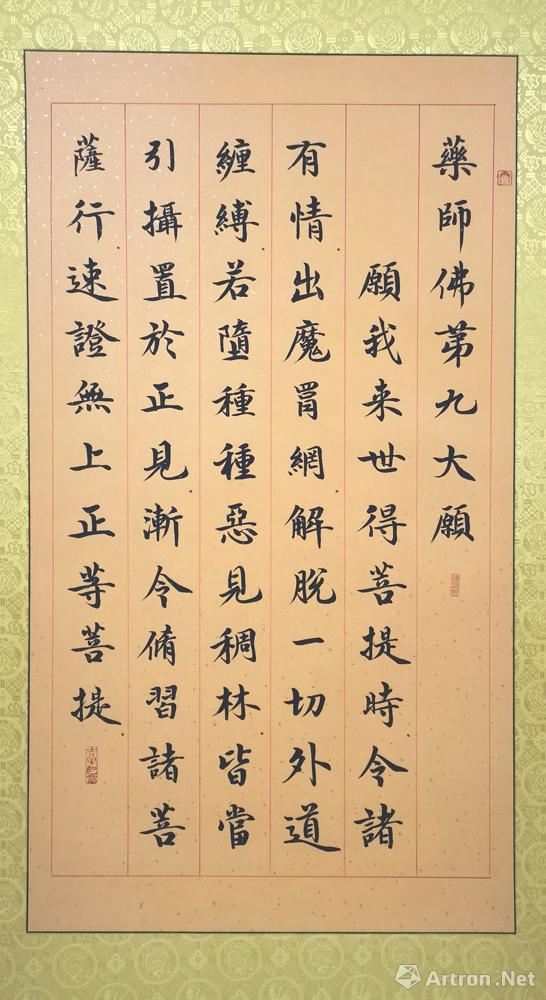 藥師佛第九大願
願我来世得菩提時令諸
有情出魔罥網解脫一切外道
纏縛若墮種種惡見稠林皆當
引攝置於正見漸令脩習諸菩
薩行速證無上正等菩提
Artron.Net